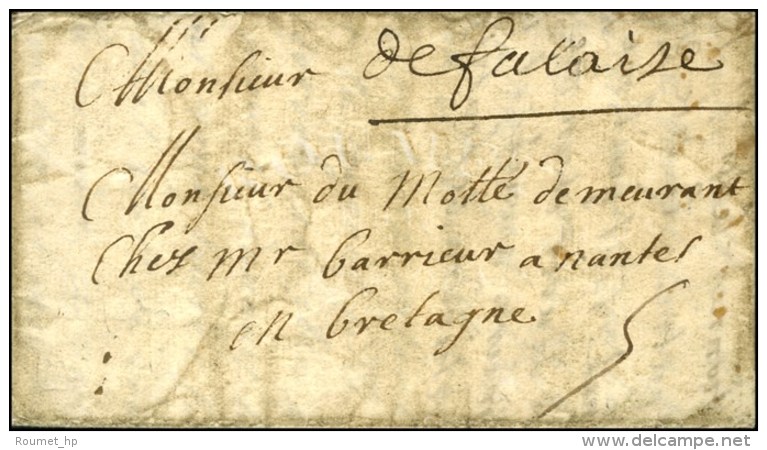 Monsieur de falaise
Monsieur du Motté demeurant
Chez mr barrieur a nantes
en bretagne
5
Roumet_hp
delcampe.net